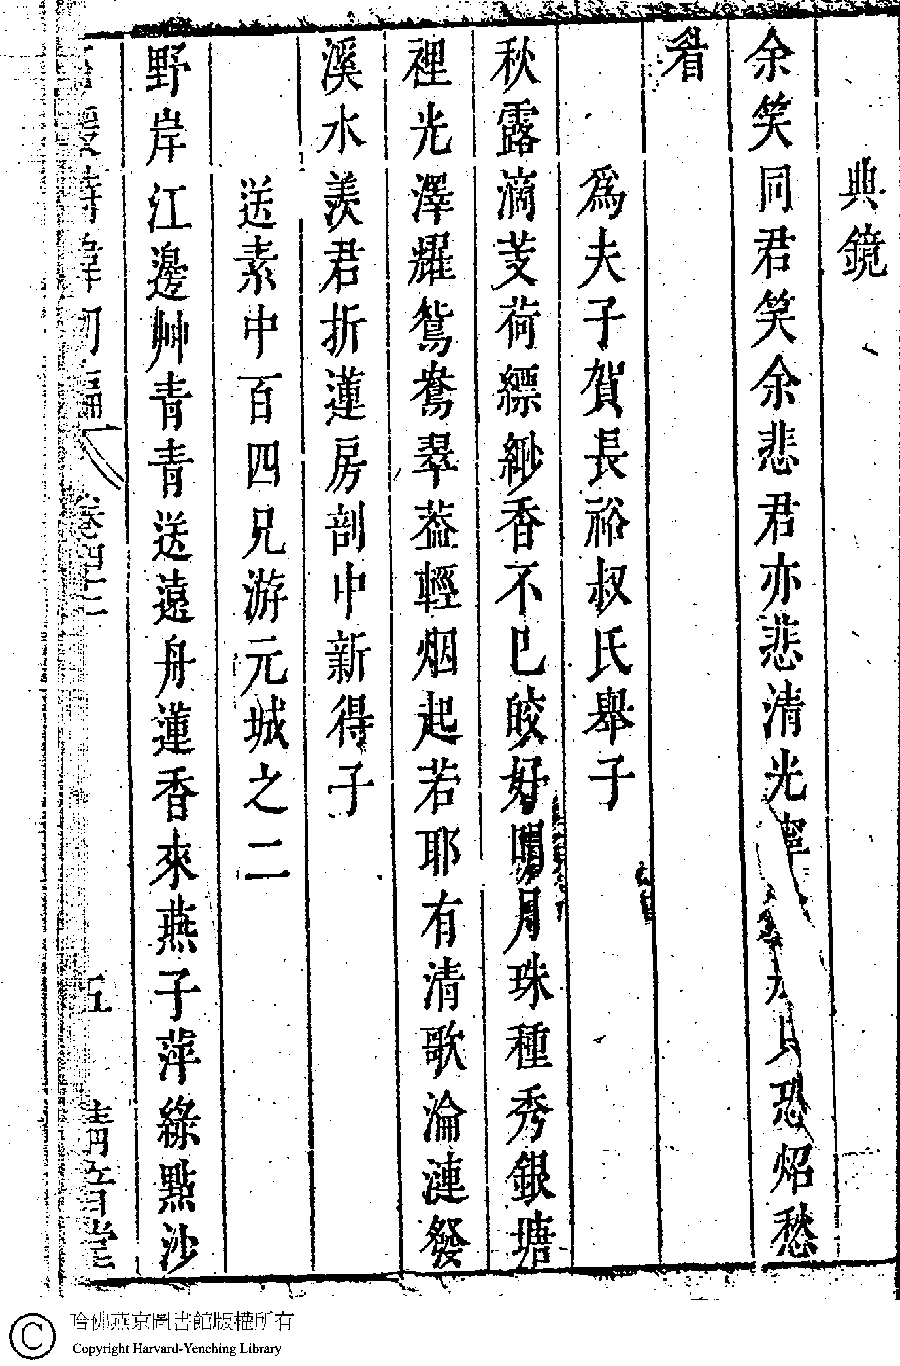 典鏡
余笑同君笑余悲君亦悲清光寧恐炤愁
看
為夫子賀長裕叔氏舉子
秋露滴芰荷縹緲香不已皎好明月珠種秀銀塘
裡光澤耀鴛鴦翠葢輕烟起若耶有清歌淪漣發
溪水羨君折蓮房剖中新得子
送素中百四兄游元城之二
野岸江邊艸青青送遠舟蓮香來燕子萍綠點沙
詩緯初編 卷四二 五 清音堂
哈佛燕京圖書館版權所有
Copyright Harvard-Yenching Library